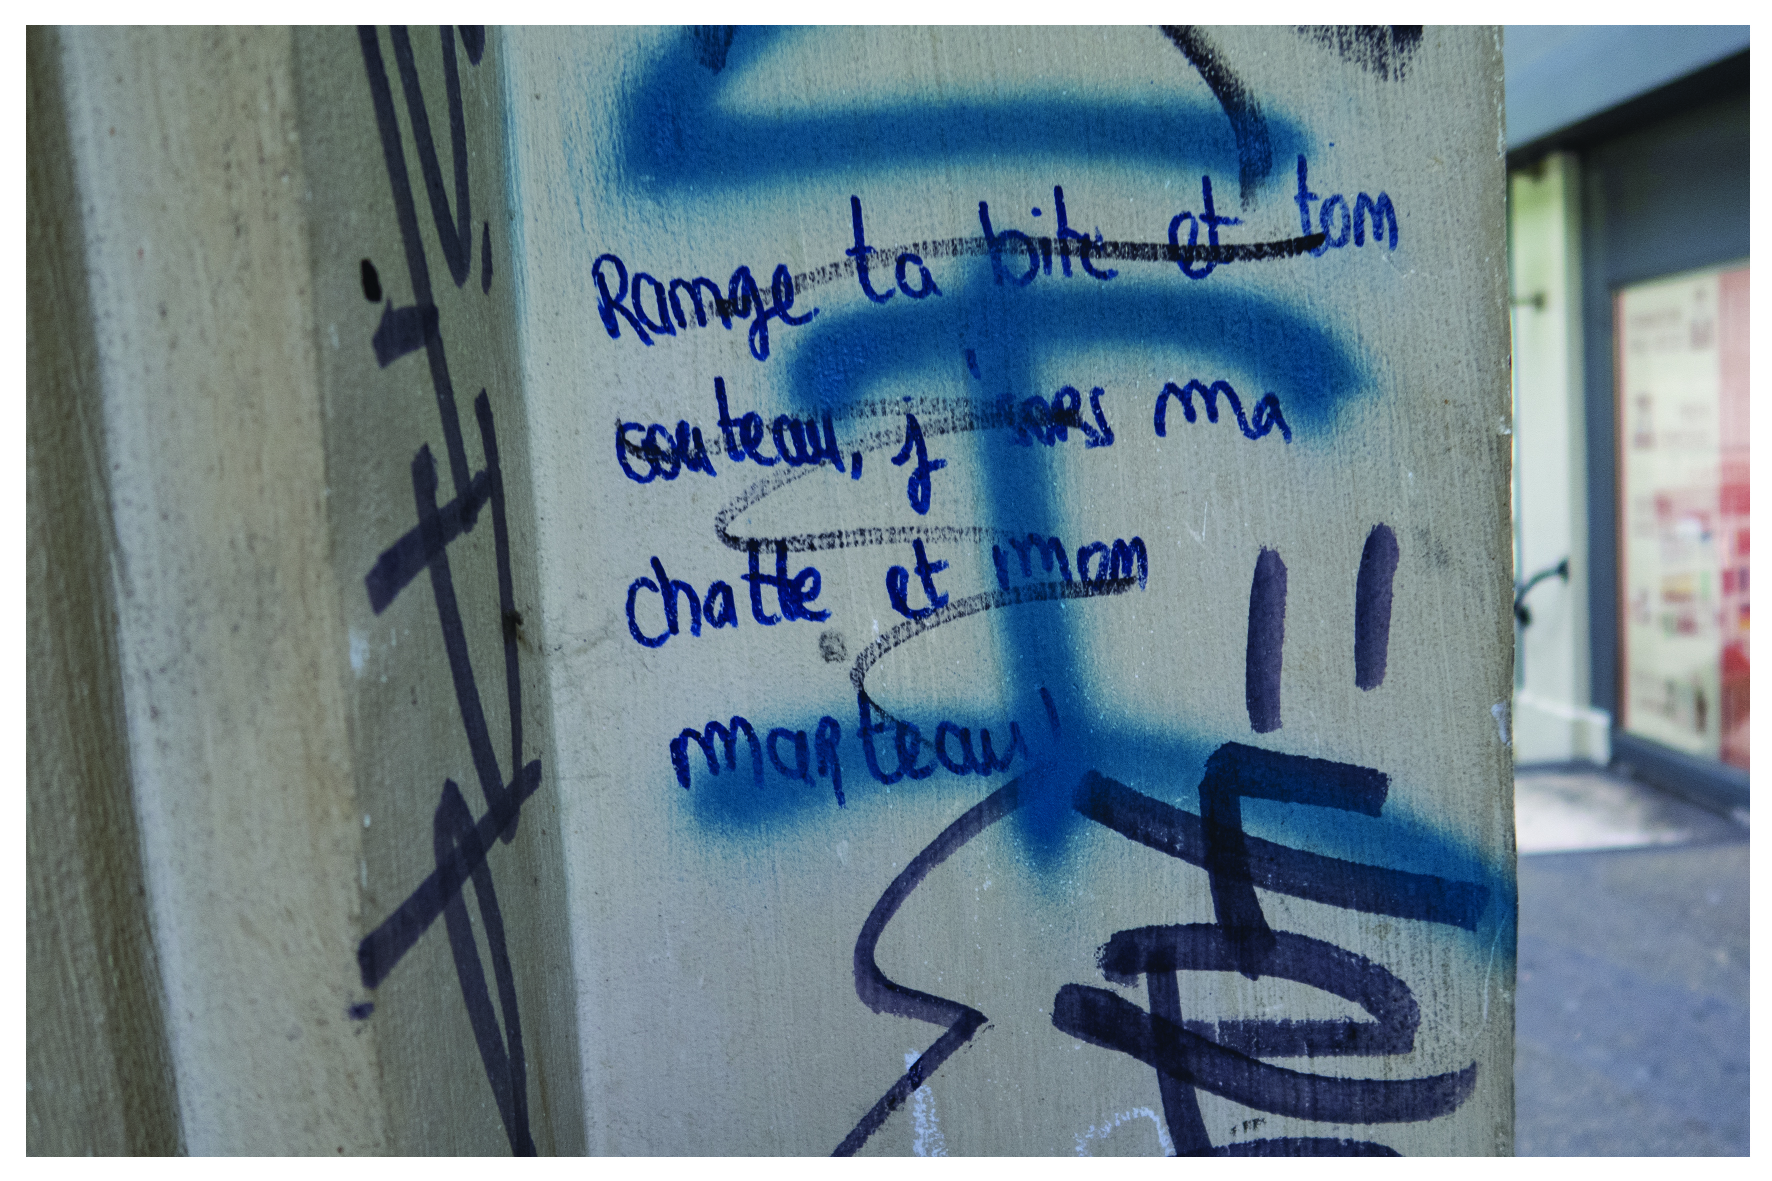 Range ta bite et ton
couteau, j'sors ma
chatte et mon
marteau!